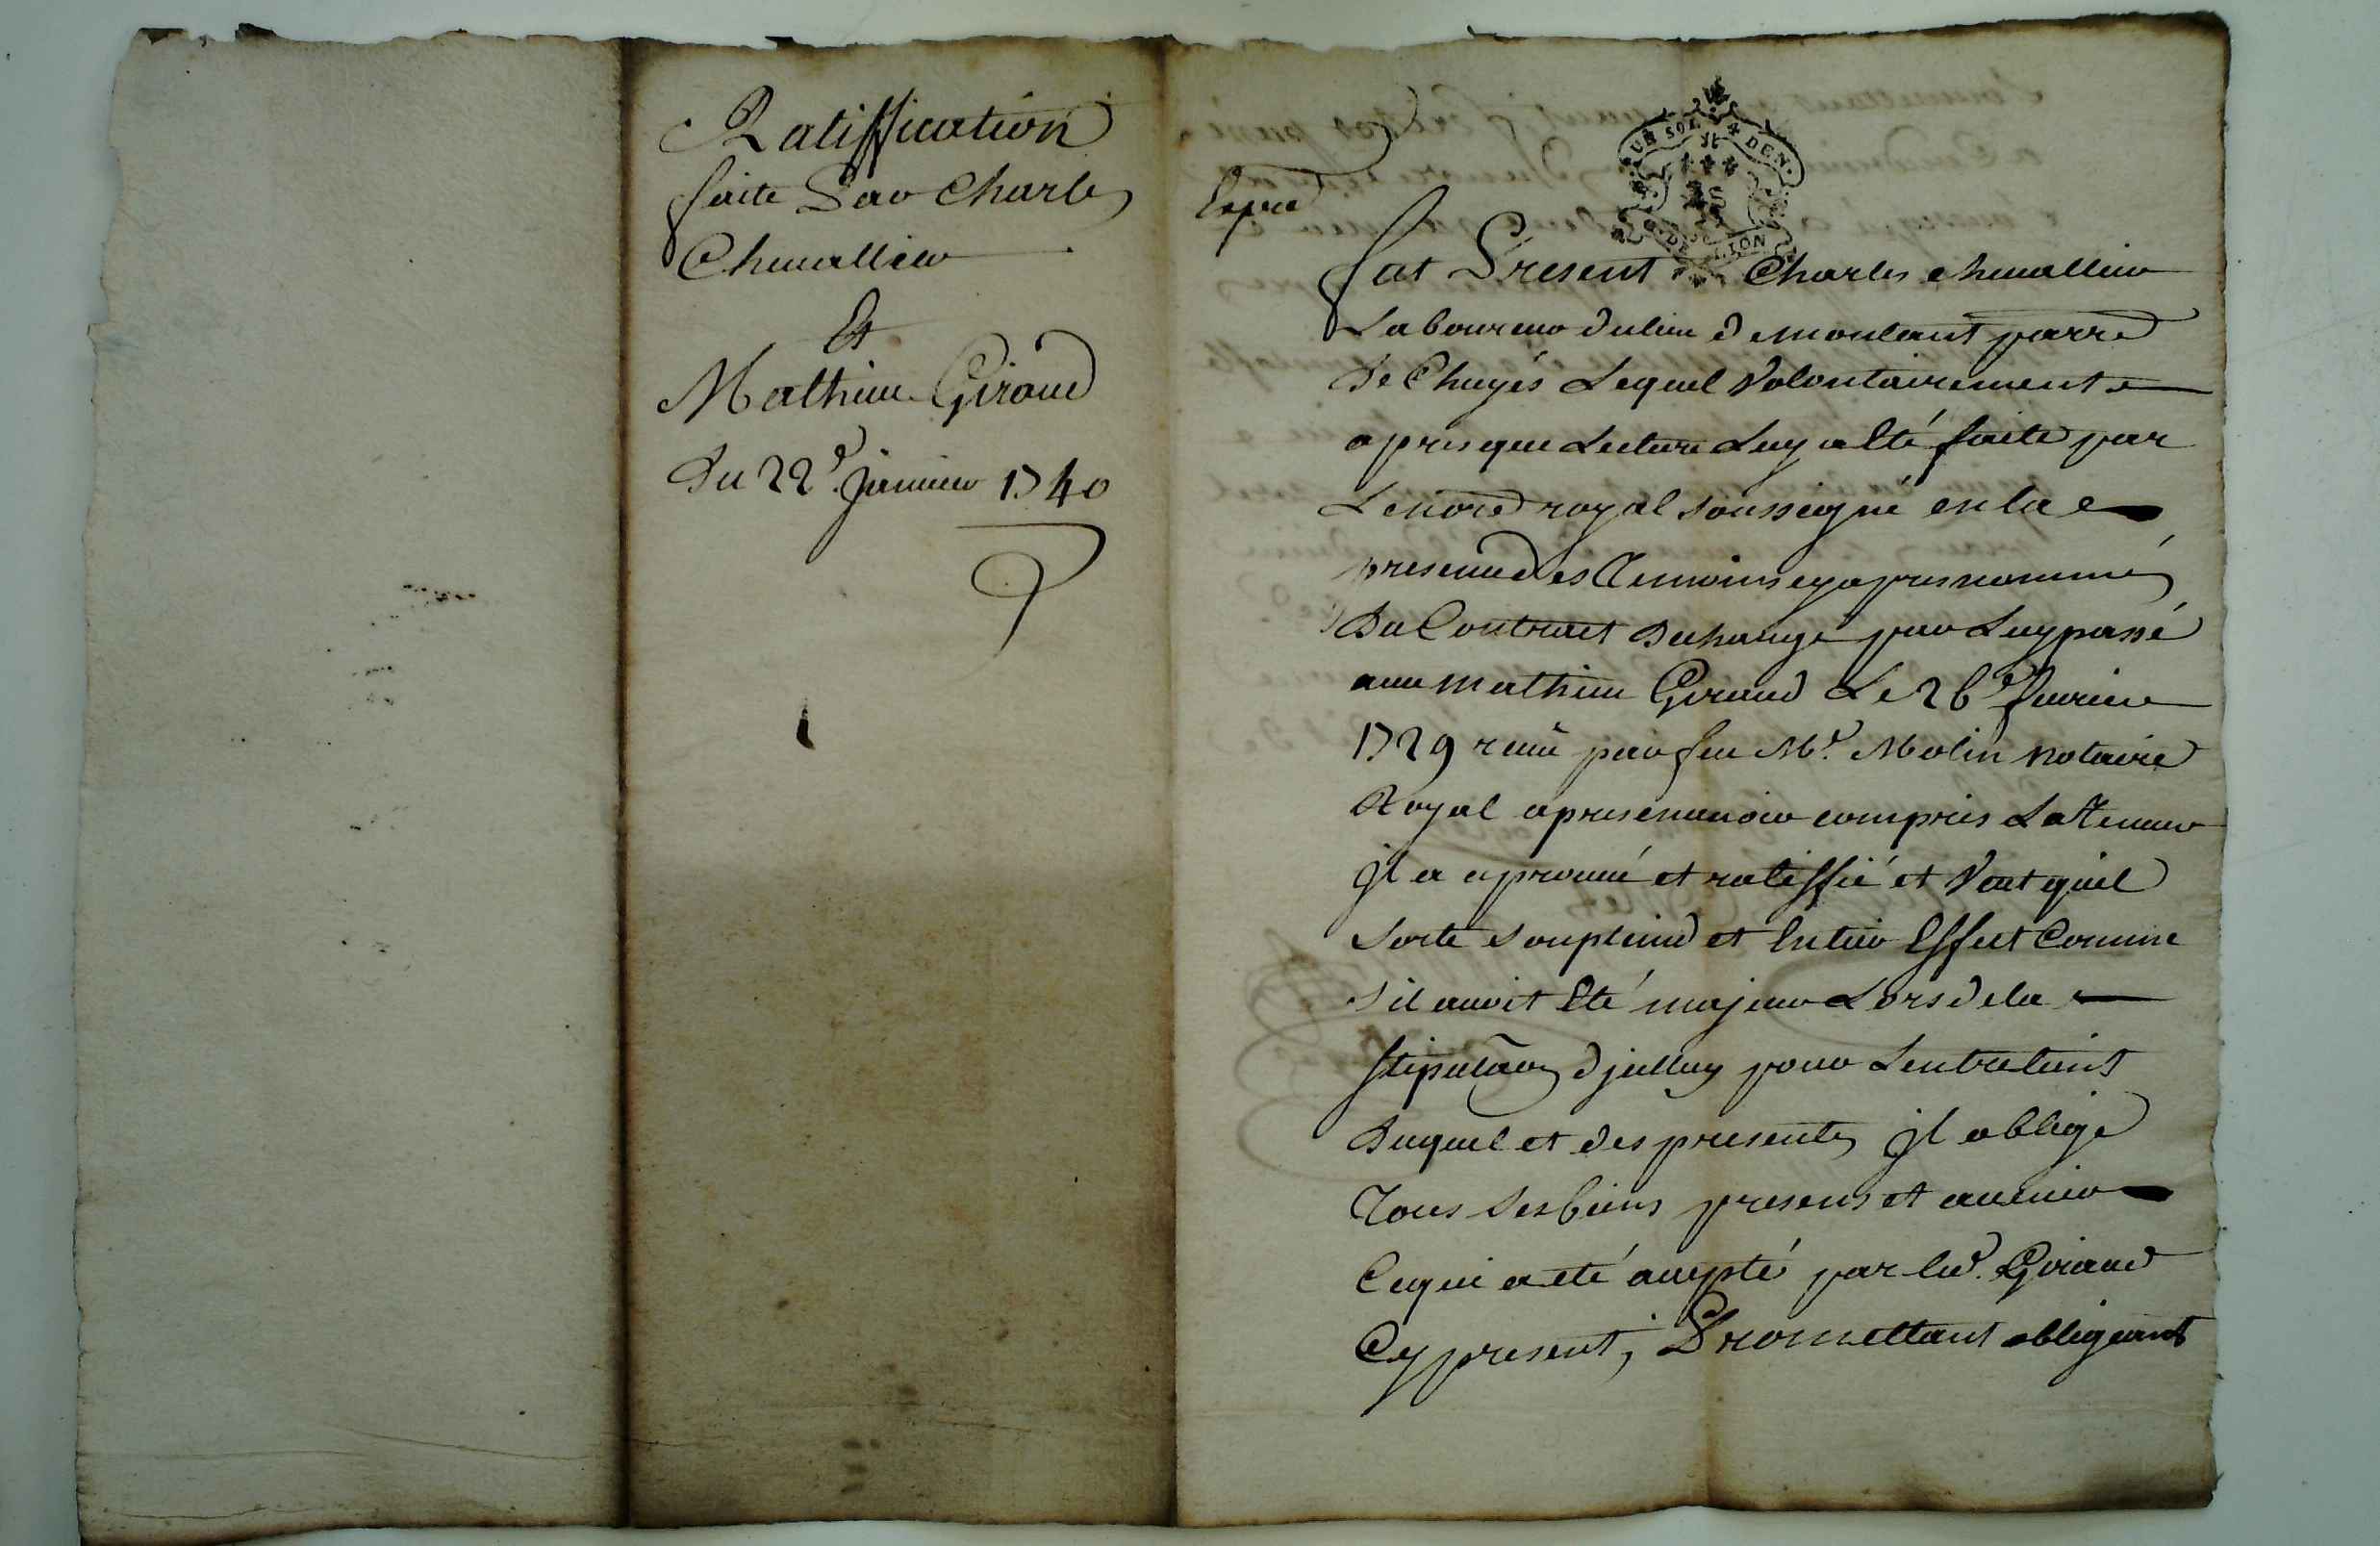 Ratiffication
faite Par Charles
Chevallier
Et
Mathieu Giraud
Du 22e. Janvier 1740
Expié
UN SOL 4 DEN.
G. DE LION
fut Present Charles chevallier
Laboureur du lieu de montant parre
De Chuyés Lequel Volontairement
apres que Lecture Luy a Eté faite par
Le nore royal soussigné en la
presence des Temoins cy apres nommés
Du Contrat dechange par Luy passé
avec mathieu Giraud Le 26e fevrier
1729 recu par feu Me. Molin notaire
Royal apres en avoir compris La Teneur
Jl a aprouvé et ratiffié et Veut quil
sorte son plein et Entier Effect Comme
s'il avoit Eté majeur Lors de la
stipulaōn djcelluy pour Lentretient
Duquel et des presentes Jl oblige
Tous ses biens presens et avenir
Ce qui a eté accepté par led. Giraud
Cy present, Promettant obligeant